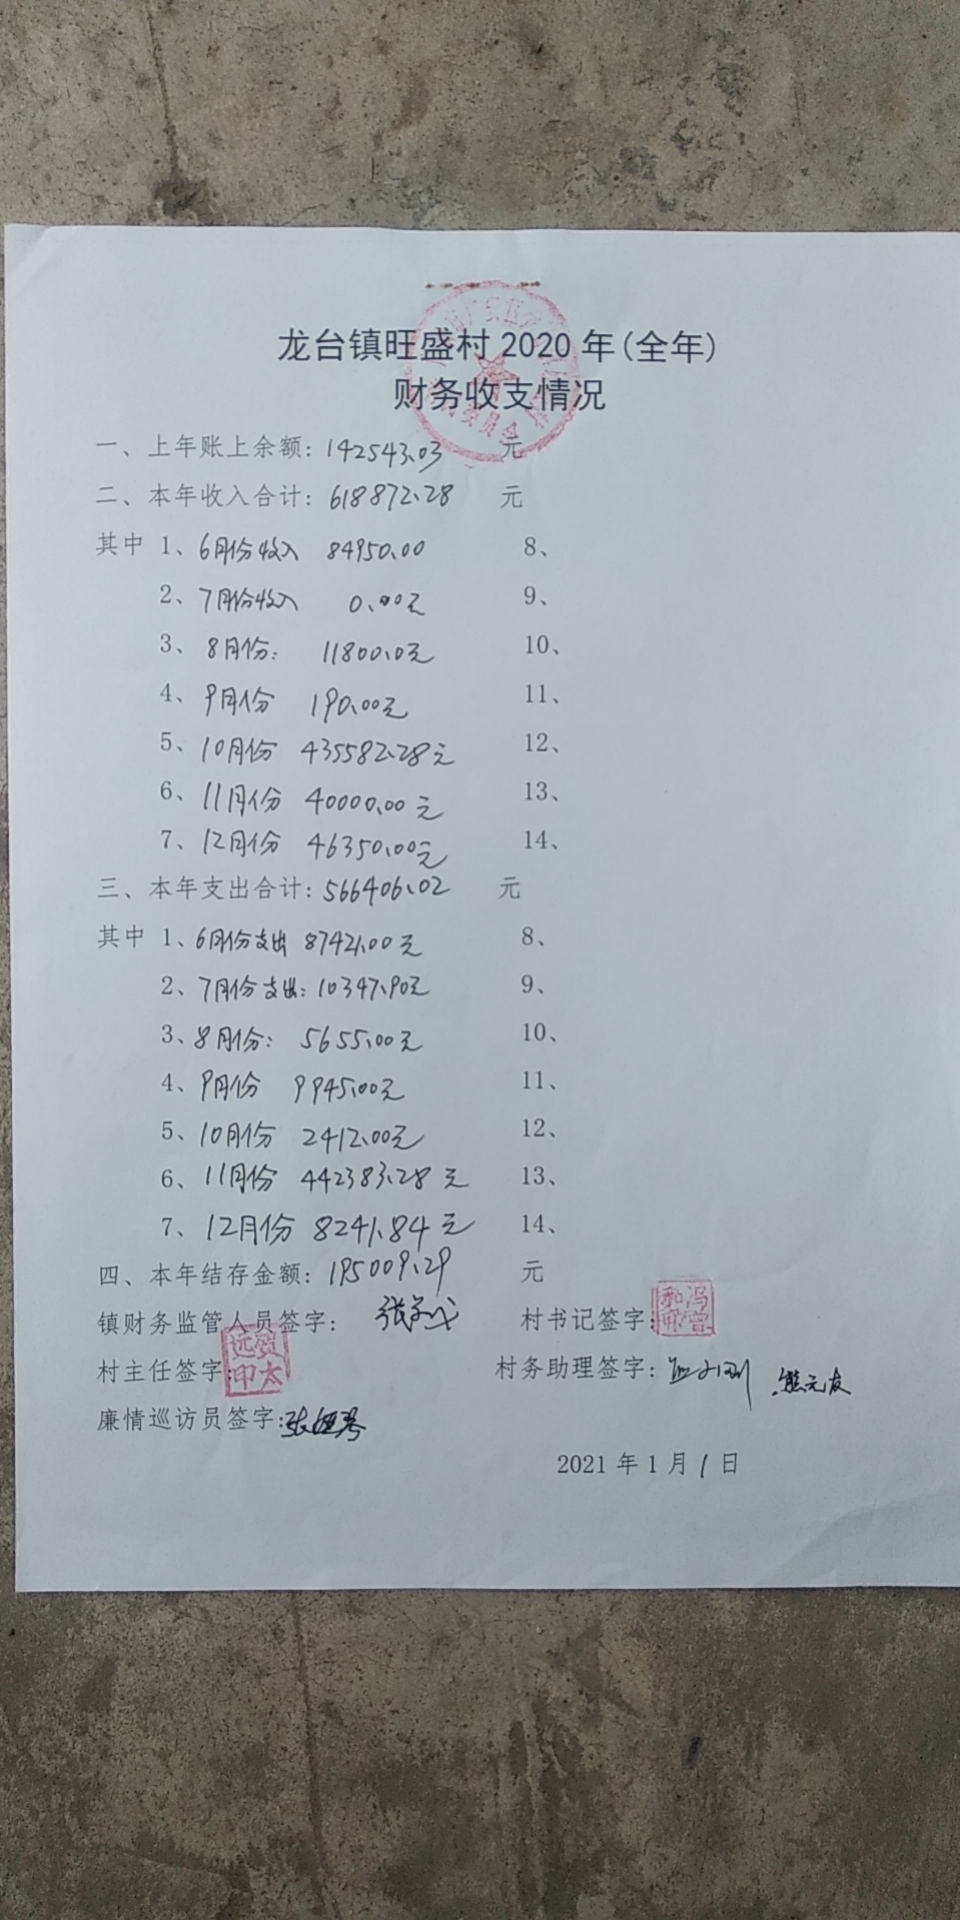 龙台镇旺盛村2020年(全年)
财务收支情况
一、上年账上余额：142543.03 元
二、本年收入合计：618872.28 元
其中 1、6月份收入 84950.00 8、
2、7月份收入 0.00元 9、
3、8月份： 11800.0元 10、
4、9月份 190.00元 11、
5、10月份 435582.28元 12、
6、11月份 40000.00元 13、
7、12月份 46350.00元 14、
三、本年支出合计：566406.02 元
其中 1、6月份支出 87421.00元 8、
2、7月份支出：10347.90元 9、
3、8月份： 5655.00元 10、
4、9月份 9945.00元 11、
5、10月份 2412.00元 12、
6、11月份 442383.28元 13、
7、12月份 8241.84元 14、
四、本年结存金额：195009.29 元
镇财务监管人员签字： 村书记签字：
村主任签字： 村务助理签字： 熊元友
廉情巡访员签字：
2021年1月1日